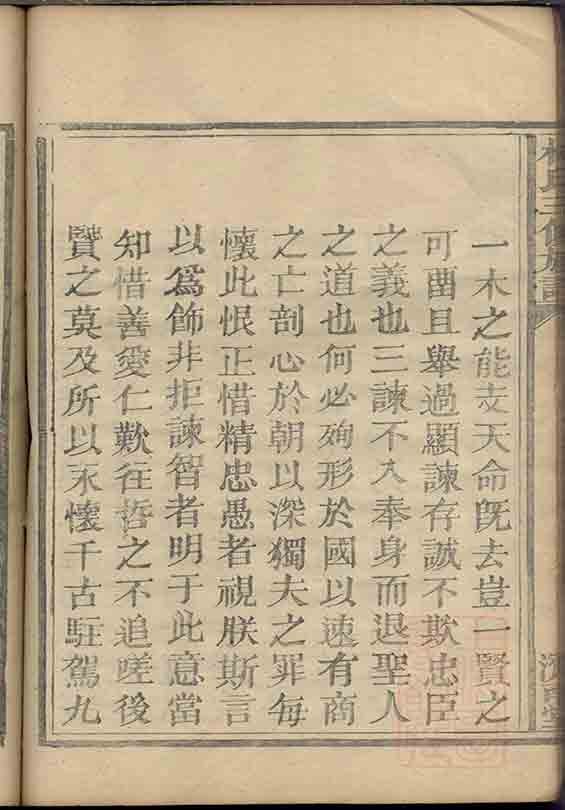 林氏三修族譜
一木之能支天命旣去豈一賢之
可畱且舉過顯諫存誠不欺忠臣
之義也三諫不入奉身而退聖人
之道也何必殉形於國以速有商
之亡剖心於朝以深獨夫之罪每
懷此恨正惜精忠愚者視朕斯言
以爲飾非拒諫智者明于此意當
知惜善愛仁歎往哲之不追嗟後
賢之莫及所以永懷千古駐駕九